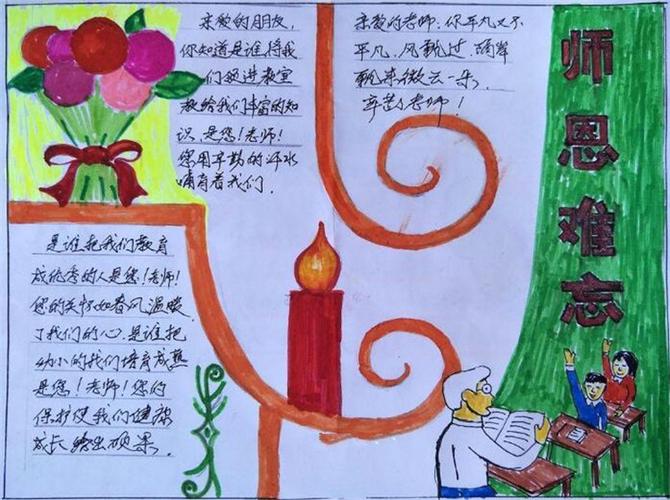 亲爱的朋友,
你知道是谁将我
们领进教室
教给我们丰富的知
识,是您!老师!
您用辛勤的汗水
哺育着我们.
亲爱的老师.你平凡又不
平凡.风飘过.隔岸
飘来微云一朵.
辛苦了老师!
师恩难忘
是谁把我们教育
成优秀的人是您!老师!
您的关怀如春风.温暖
了我们的心.是谁把
幼小的我们培育成熟
是您!老师!您的
保护使我们健康
成长结出硕果.